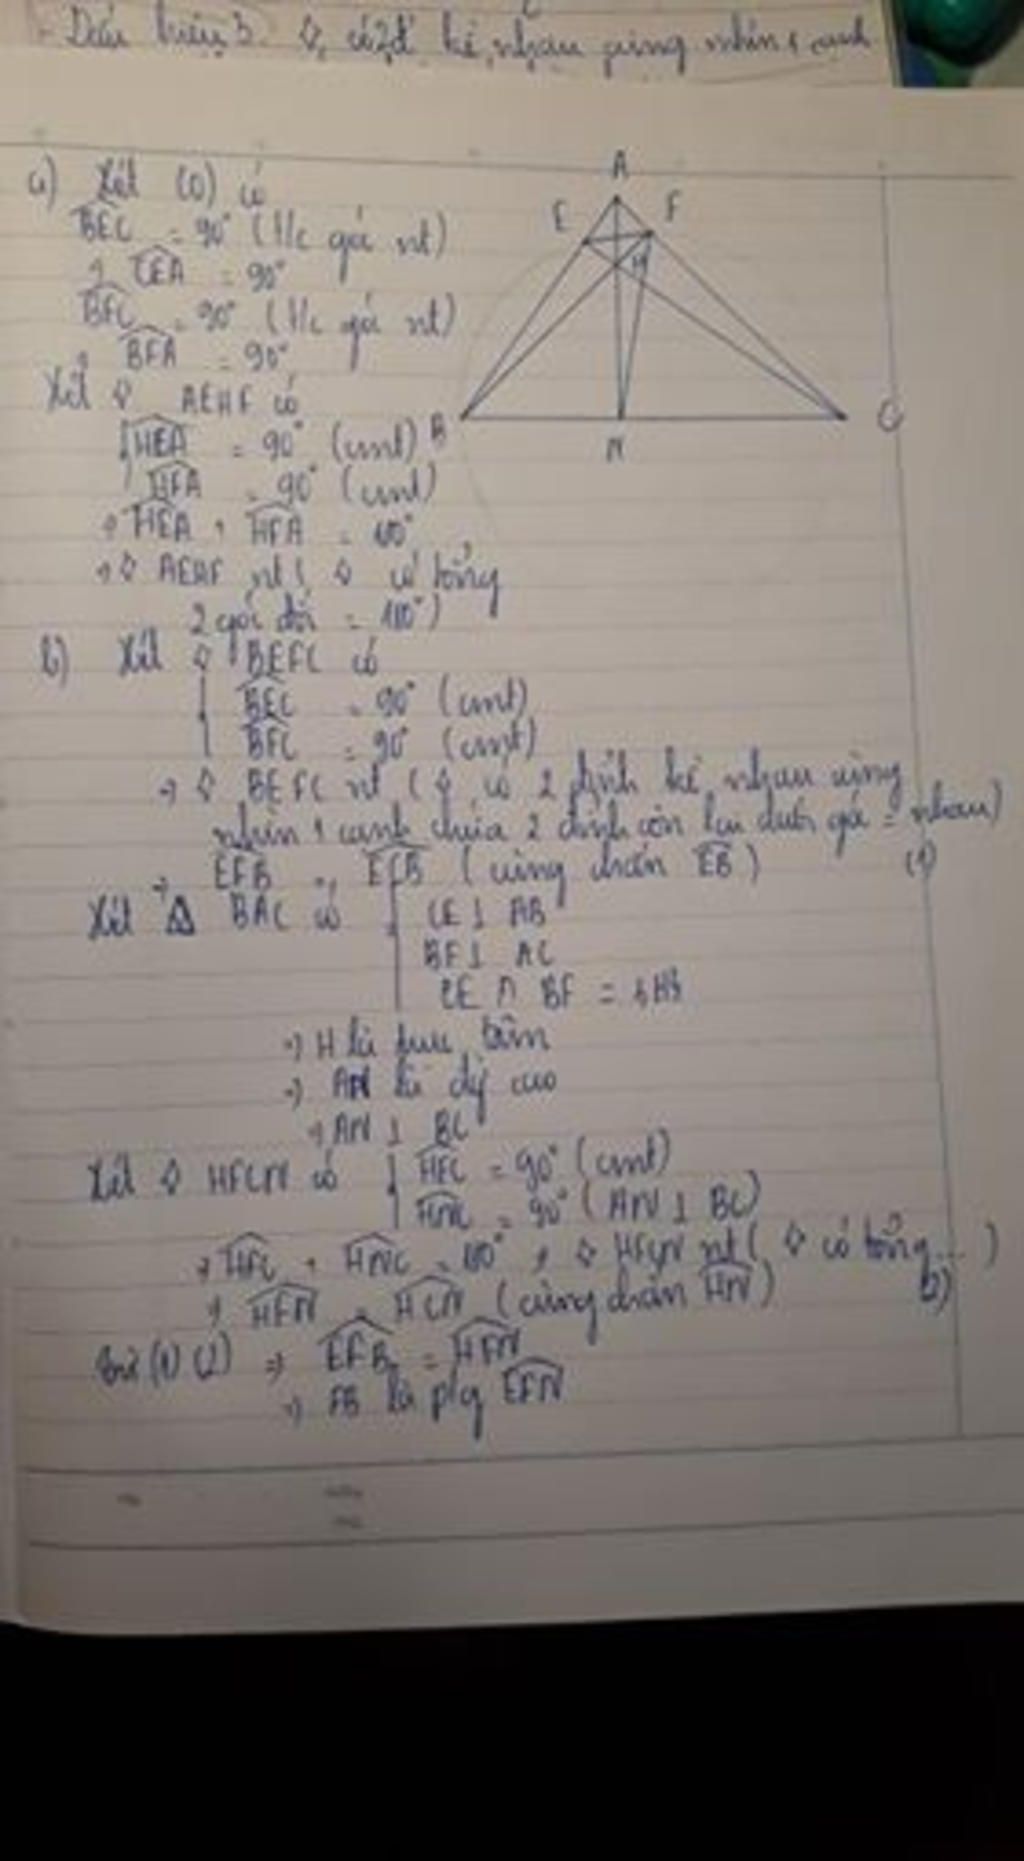 - Dấu hiệu 3: ◊ có 2 đ kề nhau cùng nhìn 1 cạnh
a) Xét (O) có
BEC = 90° ( góc nt)
→ CEA = 90°
BFC = 90° ( góc nt)
→ BFA = 90°
Xét ◊ AEHF có
HEA = 90° (cmt)
HFA = 90° (cmt)
→ HEA + HFA = 180°
→ ◊ AEHF nt ( ◊ có tổng
2 góc đối = 180°)
A
E
F
H
B
N
C
b) Xét ◊ BEFC có
BEC = 90° (cmt)
BFC = 90° (cmt)
→ ◊ BEFC nt ( ◊ có 2 đỉnh kề nhau cùng
nhìn 1 cạnh chứa 2 đỉnh còn lại dưới góc = nhau)
→ EFB = ECB ( cùng chắn EB ) (1)
Xét Δ BAC có CE ⊥ AB
BF ⊥ AC
CE ∩ BF = {H}
→ H là trực tâm
→ AN là đg cao
→ AN ⊥ BC
Xét ◊ HFCN có HFC = 90° (cmt)
HNC = 90° ( AN ⊥ BC)
→ HFC + HNC = 180° → ◊ HFCN nt ( ◊ có tổng ... )
→ HFN = HCN (cùng chắn HN) 2)
Từ (1) (2) ⇒ EFB = HFN
→ FB là p/g EFN